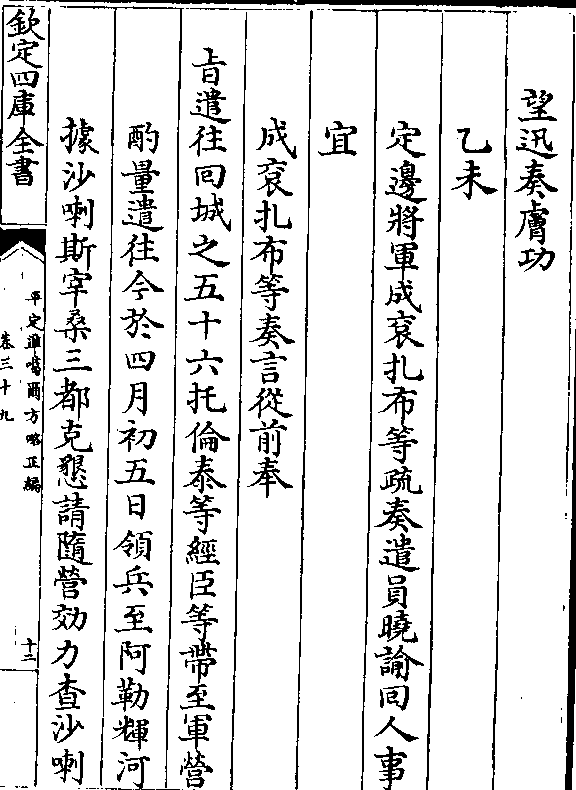 望迅奏膚功
乙未
定邊將軍成袞扎布等疏奏遣員曉諭回人事
宜
成袞扎布等奏言從前奉
旨遣往回城之五十六托倫泰等經臣等帶至軍營
酌量遣往今於四月初五日領兵至阿勒輝河
據沙喇斯宰桑三都克懇請隨營効力查沙喇
欽定四庫全書
平定準噶爾方略正編
卷三十九
十二